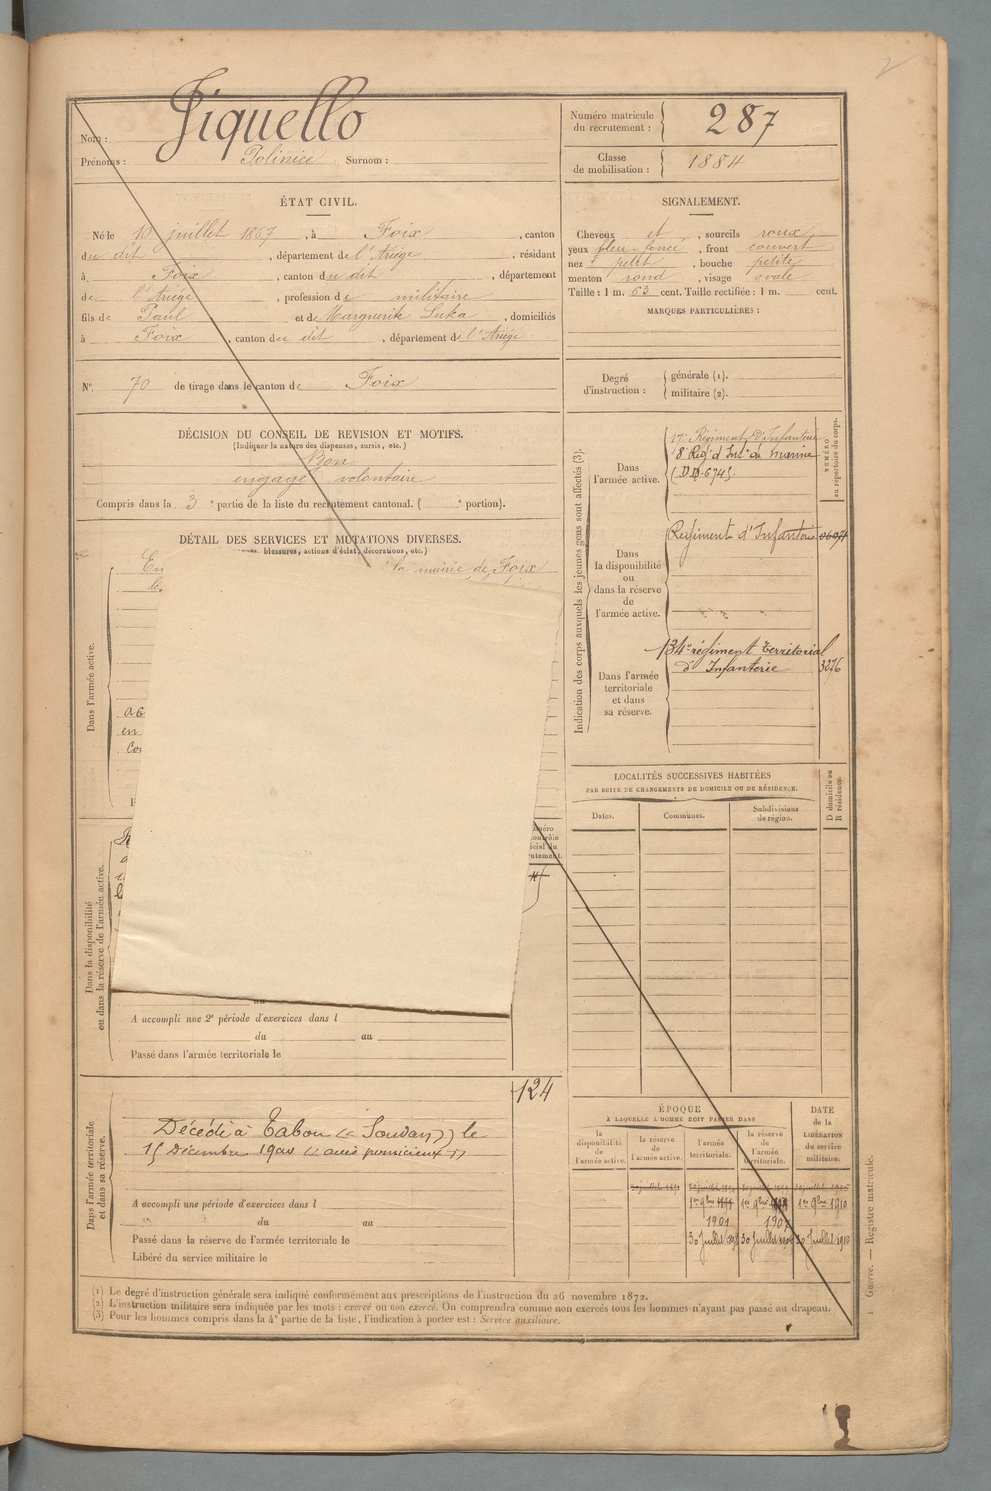 Nom : Jiquello
Prénoms : Polinice Surnom :
Numéro matricule du recrutement : 287
Classe de mobilisation : 1884
ÉTAT CIVIL.
Né le 10 juillet 1867, à Foix, canton
du dit, département de l'Ariége, résidant
à Foix, canton du dit, département
de l'Ariége, profession de militaire
fils de Paul et de Marguerite Luka, domiciliés
à Foix, canton du dit, département de l'Ariége
N° 70 de tirage dans le canton de Foix
SIGNALEMENT.
Cheveux et, sourcils roux
yeux bleu-foncé, front couvert
nez petit, bouche petite
menton rond, visage ovale
Taille : 1 m. 63 cent. Taille rectifiée : 1 m. cent.
MARQUES PARTICULIÈRES :
Degré d'instruction : générale (1).
militaire (2).
DÉCISION DU CONSEIL DE REVISION ET MOTIFS.
(Indiquer la nature des dispenses, sursis, etc.)
Bon
engagé volontaire
Compris dans la 3e partie de la liste du recrutement cantonal. ( e portion).
DÉTAIL DES SERVICES ET MUTATIONS DIVERSES.
blessures, actions d'éclat, décorations, etc.)
la mairie de Foix
Dans l'armée active.
Dans la disponibilité
ou dans la réserve de l'armée active.
A accompli une 2e période d'exercices dans l
du au
Passé dans l'armée territoriale le
124
Dans l'armée territoriale
et dans sa réserve.
Décédé à (Soudan) le
15 Décembre accès pernicieux
A accompli une période d'exercices dans l
du au
Passé dans la réserve de l'armée territoriale le
Libéré du service militaire le
Indication des corps auxquels les jeunes gens sont affectés (3).
NUMÉRO
au répertoire du corps.
Dans
l'armée active.
17e Régiment d'Infanterie
8 Rég. d'Inf. de marine
Dans
la disponibilité
ou
dans la réserve
de
l'armée active.
Régiment d'Infanterie
Dans l'armée
territoriale
et dans
sa réserve.
134e régiment territorial
d'Infanterie
3276
LOCALITÉS SUCCESSIVES HABITÉES
PAR SUITE DE CHANGEMENTS DE DOMICILE OU DE RÉSIDENCE.
D domicile ou
R résidence.
Dates.
Communes.
Subdivisions
de région.
ÉPOQUE
À LAQUELLE L'HOMME DOIT PASSER DANS
DATE
de la
LIBÉRATION
du service
militaire.
la
disponibilité
de
l'armée active.
la réserve
de
l'armée active.
l'armée
territoriale.
la réserve
de
l'armée
territoriale.
1er 9bre 1er 9bre 1er 9bre 1910
1901 1907
30 Juillet 30 Juillet 30 Juillet 1910
(1) Le degré d'instruction générale sera indiqué conformément aux prescriptions de l'instruction du 26 novembre 1872.
(2) L'instruction militaire sera indiquée par les mots : exercé ou non exercé. On comprendra comme non exercés tous les hommes n'ayant pas passé au drapeau.
(3) Pour les hommes compris dans la 4e partie de la liste, l'indication à porter est : Service auxiliaire.
Guerre. — Registre matricule.